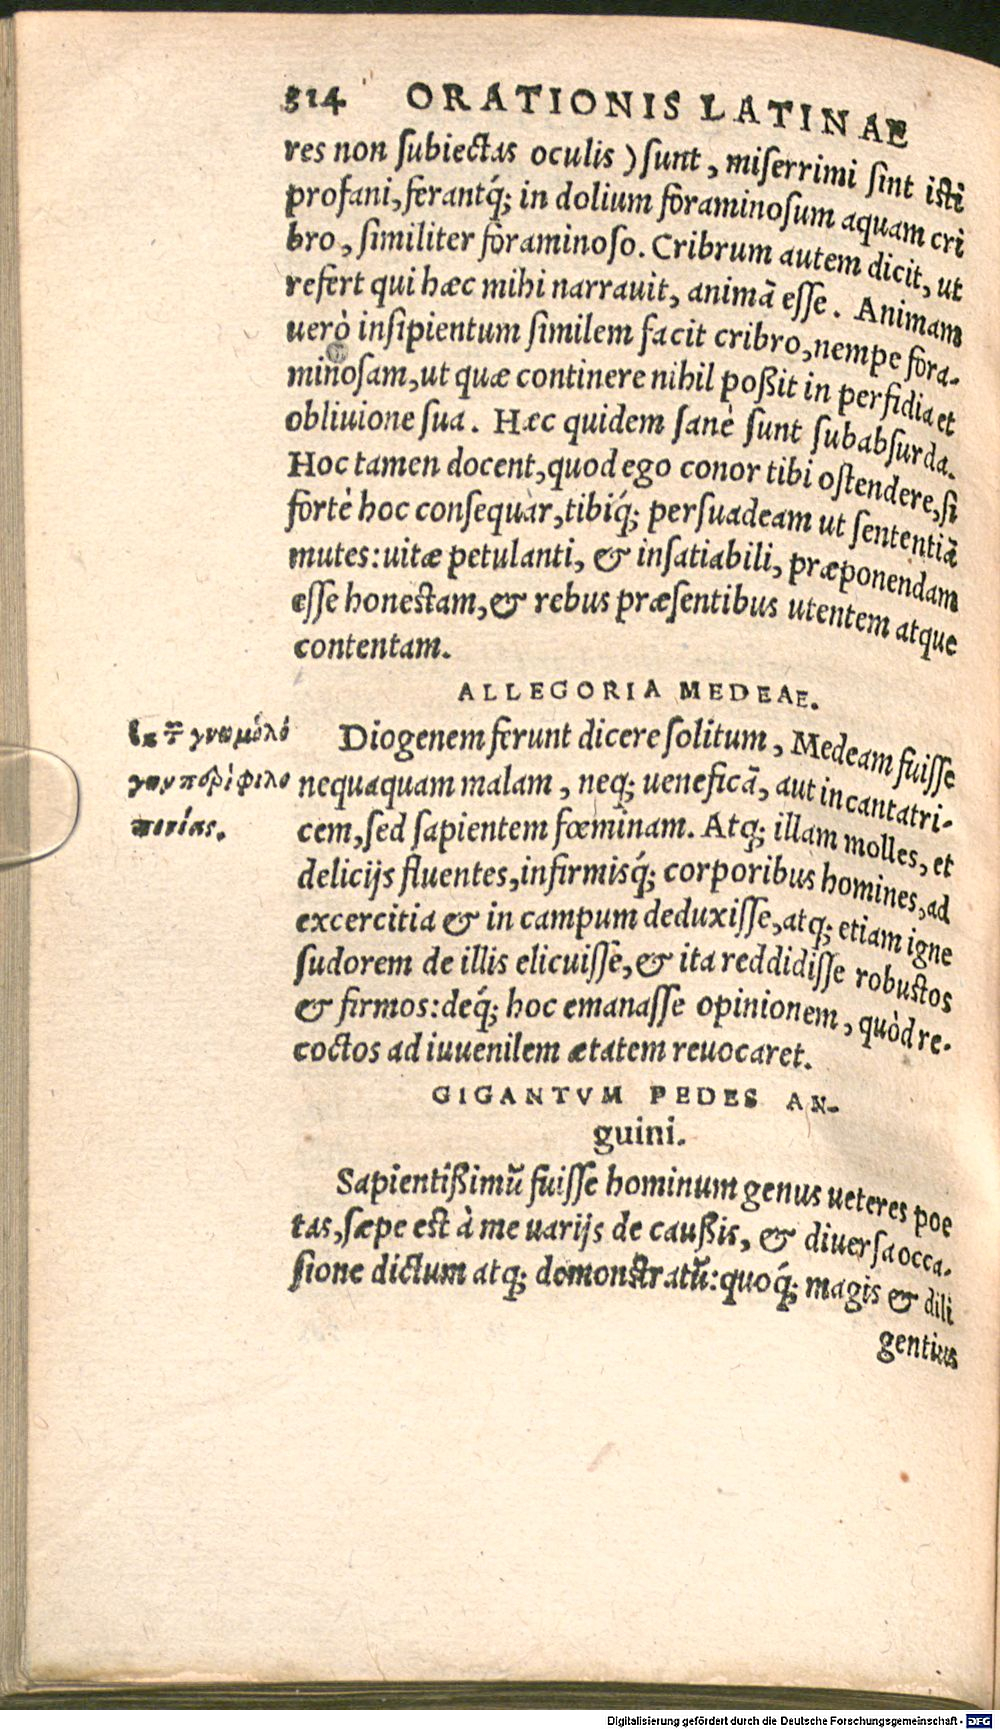 314 ORATIONIS LATINAE
res non subiectas oculis) sunt, miserrimi sint isti
profani, ferantq́; in dolium foraminosum aquam cri
bro, similiter foraminoso. Cribrum autem dicit, ut
refert qui hæc mihi narrauit, animã esse. Animam
uerò insipientum similem facit cribro, nempe fora-
minosam, ut quæ continere nihil poßit in perfidia et
obliuione sua. Hæc quidem sanè sunt subabsurda.
Hoc tamen docent, quod ego conor tibi ostendere, si
fortè hoc consequar, tibiq́; persuadeam ut sententiã
mutes: uitæ petulanti, & insatiabili, præponendam
esse honestam, & rebus præsentibus utentem atque
contentam.
ALLEGORIA MEDEAE.
Diogenem ferunt dicere solitum, Medeam fuisse
nequaquam malam, neq; ueneficã, aut incantatri-
cem, sed sapientem fœminam. Atq; illam molles, et
delicijs fluentes, infirmisq́; corporibus homines, ad
excercitia & in campum deduxisse, atq; etiam igne
sudorem de illis elicuisse, & ita reddidisse robustos
& firmos: deq́; hoc emanasse opinionem, quòd re-
coctos ad iuuenilem ætatem reuocaret.
GIGANTVM PEDES AN-
guini.
Sapientißimũ fuisse hominum genus ueteres poe
tas, sæpe est à me uarijs de caußis, & diuersa occa-
sione dictum atq; demonstratũ: quoq́; magis & dili
gentius
Digitalisierung gefördert durch die Deutsche Forschungsgemeinschaft - DFG